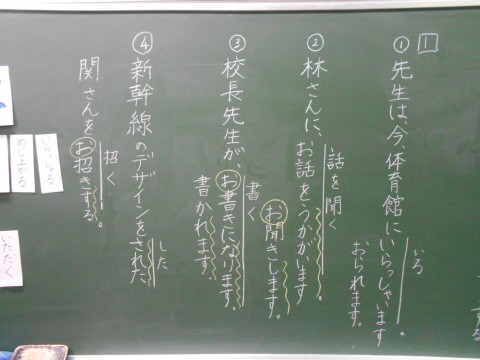 1
①先生は、今、体育館にいらっしゃいます。
いる
おられます。
②林さんに、お話をうかがいます。
話を聞く
お聞きします。
③校長先生が、お書きになります。
書く
書かれます。
④新幹線のデザインをされた
した
関さんをお招きする。
招く
いらっしゃる
めし上がる
いただく
する